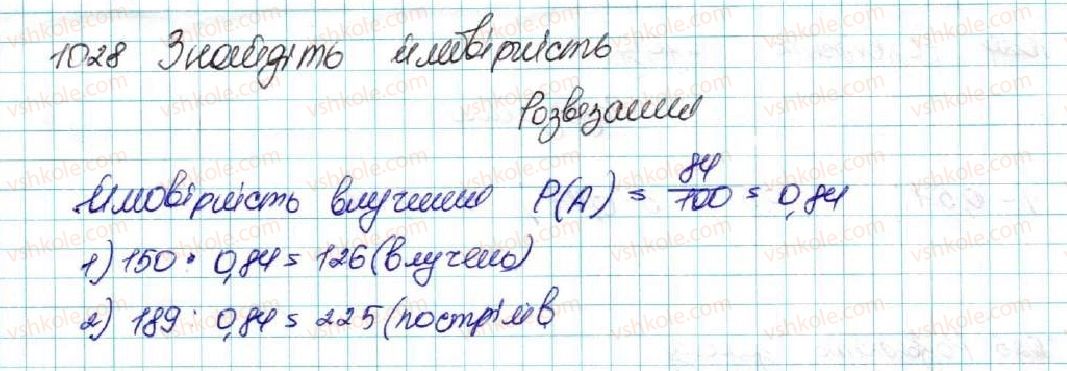 1028 Знайдіть ймовірність
Розвезання
Ймовірність влучення P(A) = 84/100 = 0,84
1) 150 · 0,84 = 126 (влучень)
2) 189 : 0,84 = 225 (пострілів